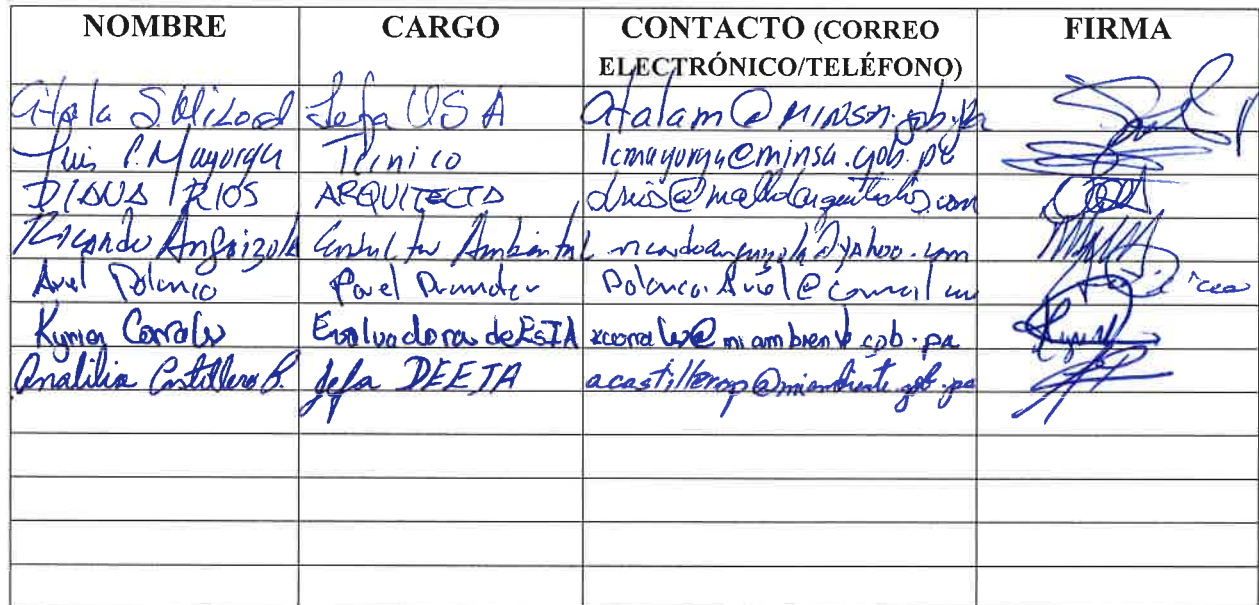 NOMBRE CARGO CONTACTO (CORREO ELECTRÓNICO/TELÉFONO) FIRMA
Atala S. Milord Jefa USA atalam@minsa.gob.pa
Luis C. Mayorga Técnico lcmayorga@minsa.gob.pa
DIANA RIOS ARQUITECTA
Ricardo Anguizola Consultor Ambiental ricardoanguizola@yahoo.com
Ariel Polanco Por el Promotor
Kymer Corrales Evaluadora de EsIA
Analilia Castillero P. Jefa DEEIA acastillerop@miambiente.gob.pa